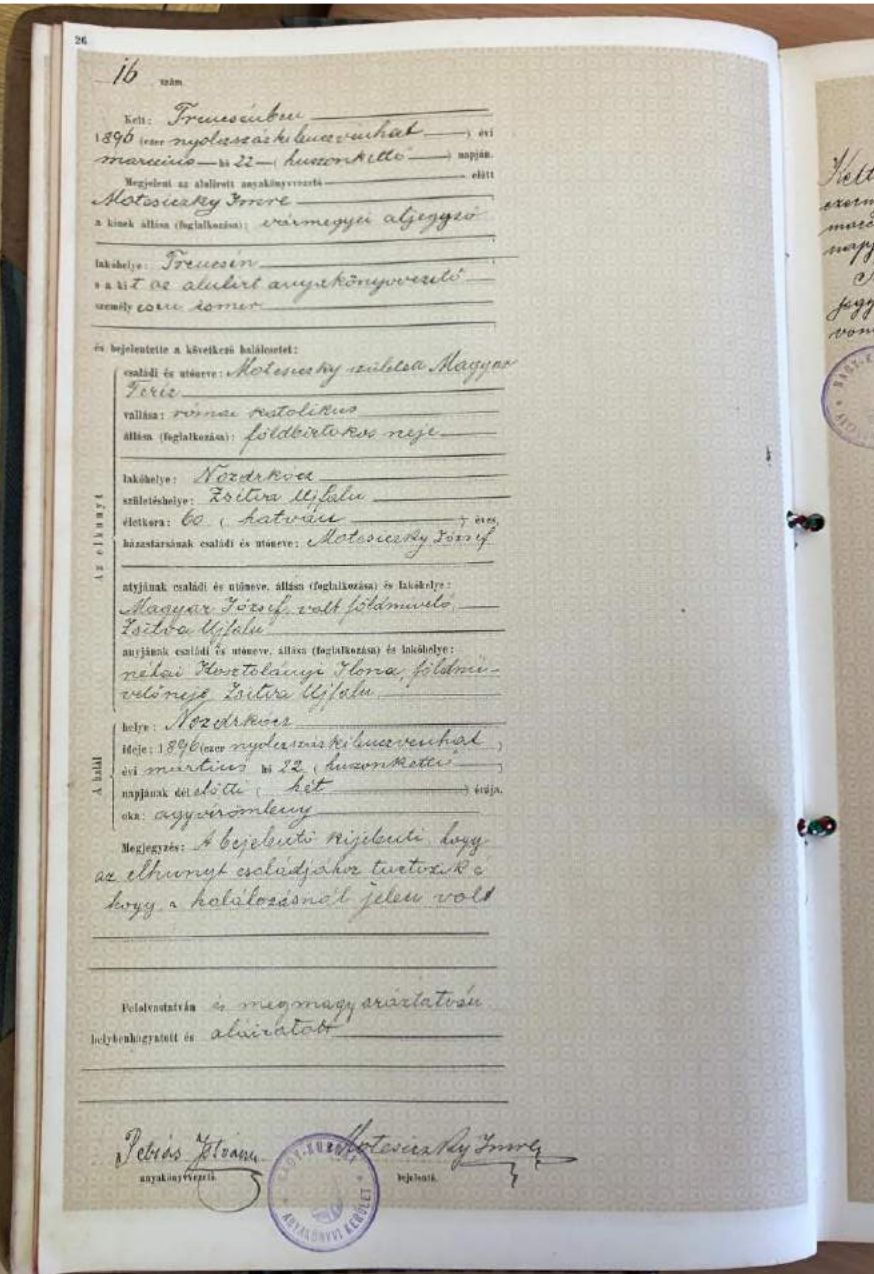 26
16 szám
Kelt: Trencsénben
1896 (ezer nyolczszázkilenczvenhat ) évi
marczius hó 22 ( huszonkettő ) napján.
Megjelent az alulirott anyakönyvvezető előtt
Motesiczky Imre
a kinek állása (foglalkozása): vármegyei aljegyző
lakóhelye: Trencsén
s a kit az alulirt anyakönyvvezető
személyesen ismer
és bejelentette a következő halálesetet:
Az elhunyt
családi és utóneve: Motesiczky születea Magyar
Teríz
vallása: római katolikus
állása (foglalkozása): földbirtokos neje
lakóhelye: Nozdrkócz
születéshelye: Zsitva Ujfalu
életkora: 60 ( hatván ) éves,
házastársának családi és utóneve: Motesiczky József
atyjának családi és utóneve, állása (foglalkozása) és lakóhelye:
Magyar József, volt földmivelő,
Zsitva Ujfalu
anyjának családi és utóneve, állása (foglalkozása) és lakóhelye:
néhai Kosztolányi Ilona, földmi-
velőneje Zsitva Ujfalu
A halál
helye: Nozdrkócz
ideje: 1896 (ezer nyolczszázkilenczvenhat )
évi martius hó 22 ( huszonkettő )
napjának délelőtti ( hét ) órája.
oka: agyvérömleny
Megjegyzés: A bejelentő kijelenti, hogy
az elhunyt családjához tartozik é
hogy a halálozásnál jelen volt
Felolvastatván és megmagyaráztatván
helybenhagyatott és aláiratott
Pebiás István Motesiczky Imre
anyakönyvvezető. bejelentő.
NAGY-KUBRAI ANYAKÖNYVI KERÜLET
Kelt